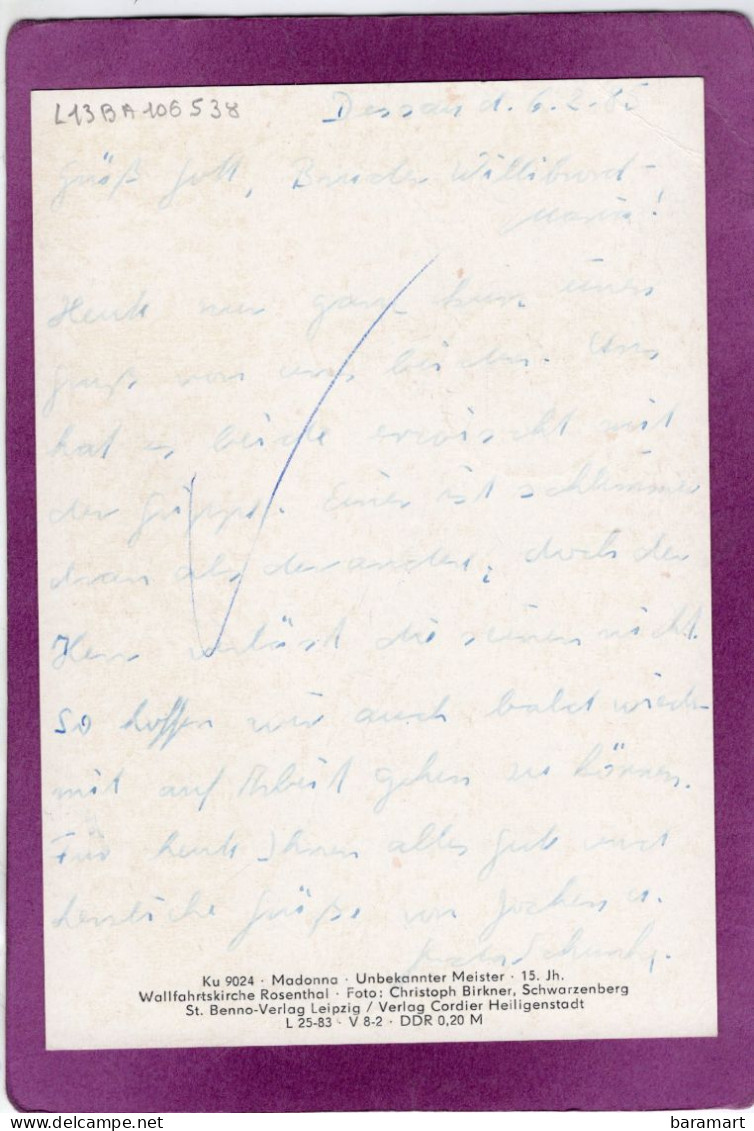 L13BA106538
Dessau d. 6.2.85
Grüß Gott, Bruder Willibrord-
Maria!
Heute nur ganz kurz einen
Gruß von uns beiden. Uns
hat es beide erwischt mit
der Grippe. Einer ist schlimmer
dran als der andere, doch der
Herr verläst die seinen nicht.
So hoffen wir auch bald wieder
mit auf Arbeit gehen zu können.
Für heute Ihnen alles Gute und
herzliche Grüße von Jochen u.
Ku 9024 · Madonna · Unbekannter Meister · 15. Jh.
Wallfahrtskirche Rosenthal · Foto: Christoph Birkner, Schwarzenberg
St. Benno-Verlag Leipzig / Verlag Cordier Heiligenstadt
L 25-83 · V 8-2 · DDR 0,20 M
baramart